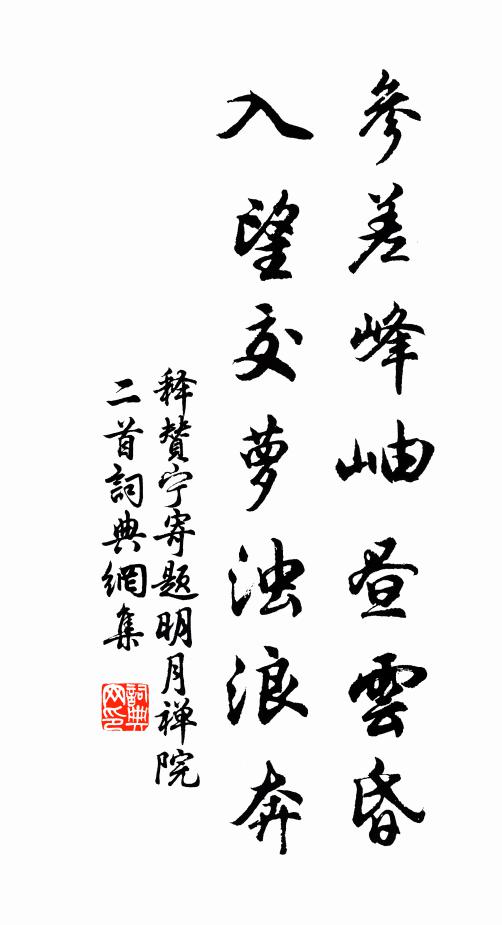 參差峰岫昼雲昏
入望交夢浊浪奔
释贊宁寄题明月禅院
二首詞典網集
詞典
网印